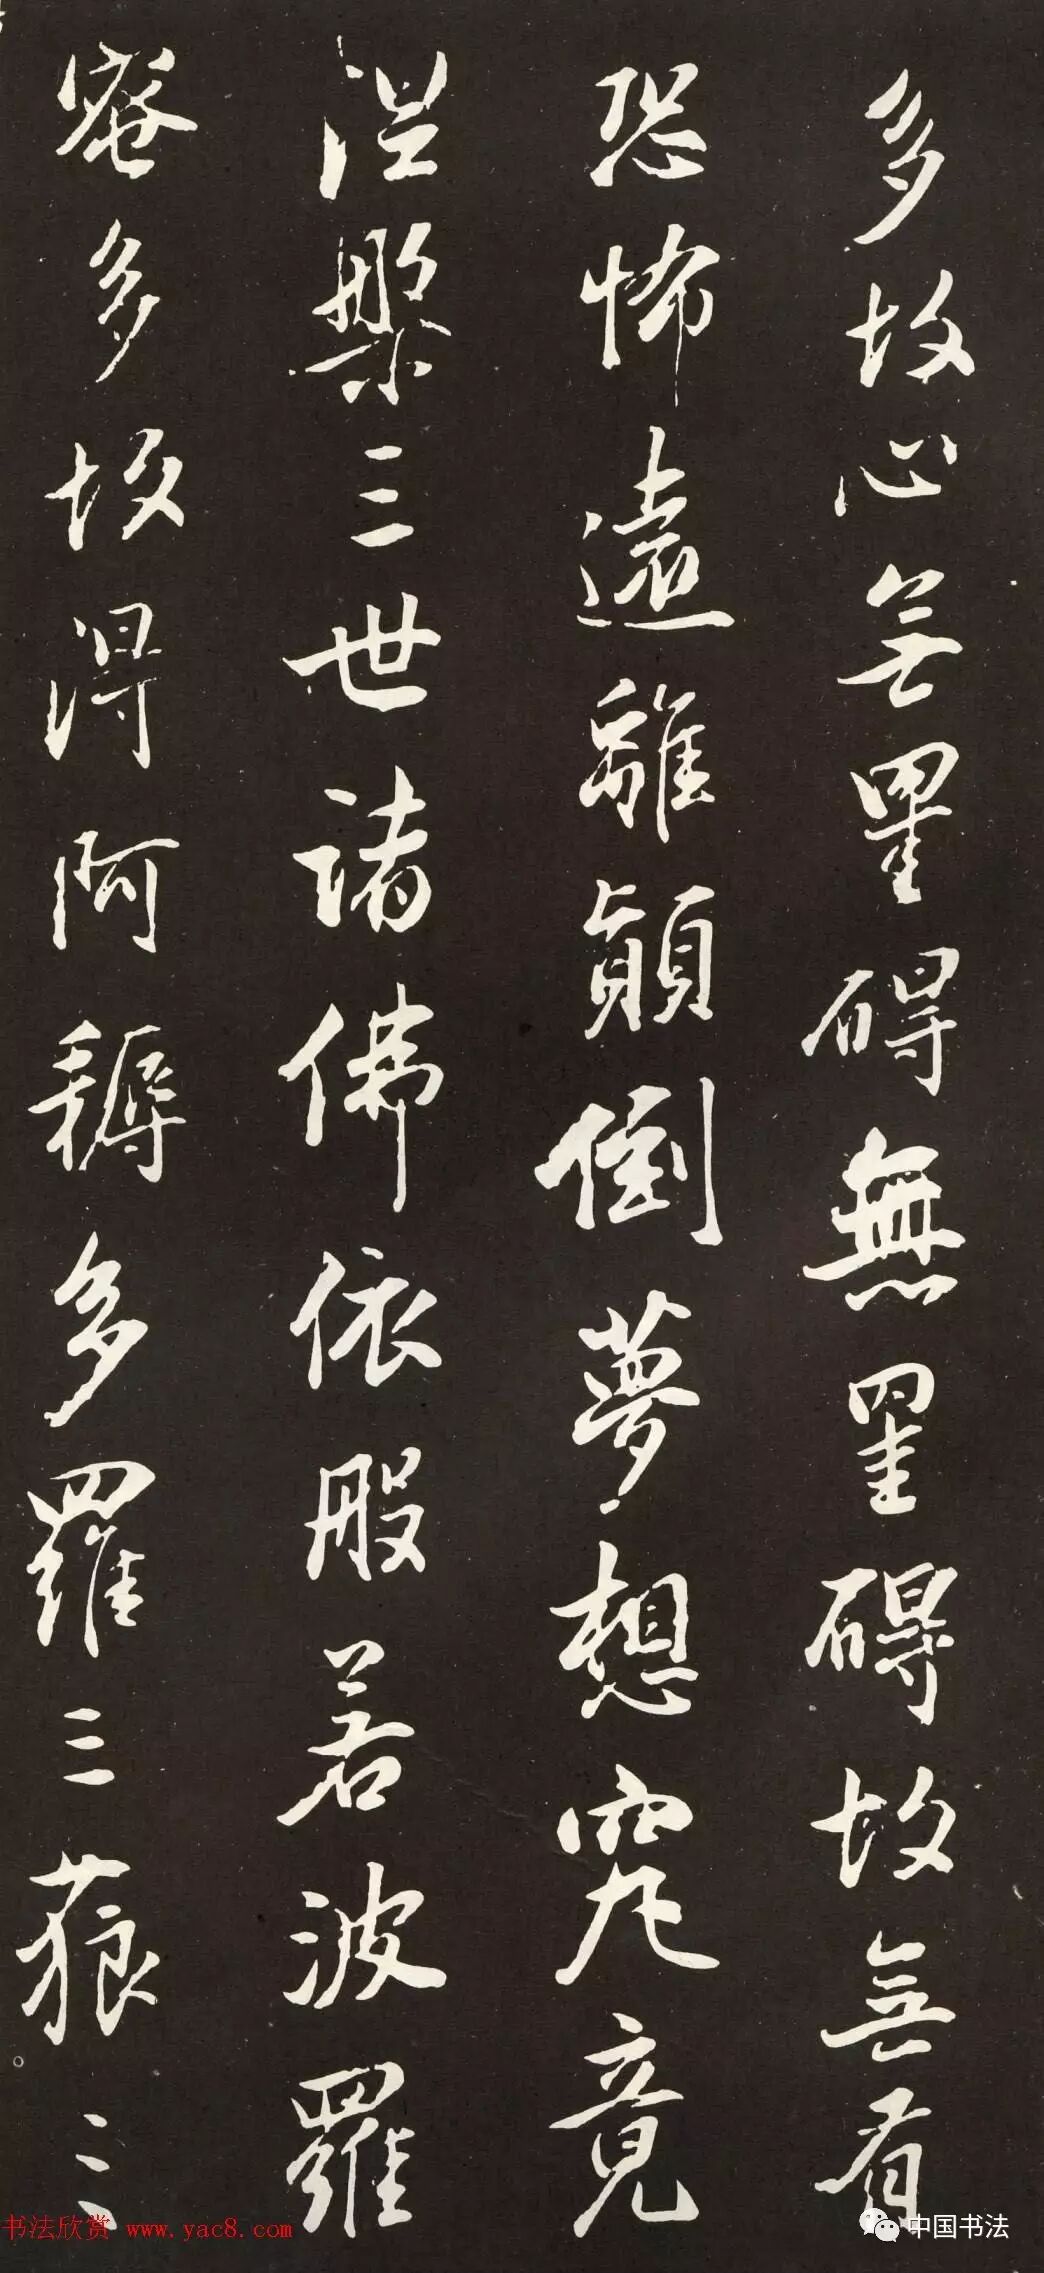 多故心无罣碍無罣碍故無有
恐怖遠離顛倒夢想究竟
涅槃三世諸佛依般若波羅
蜜多故得阿耨多羅三藐三
书法欣赏 www.yac8.com
中国书法